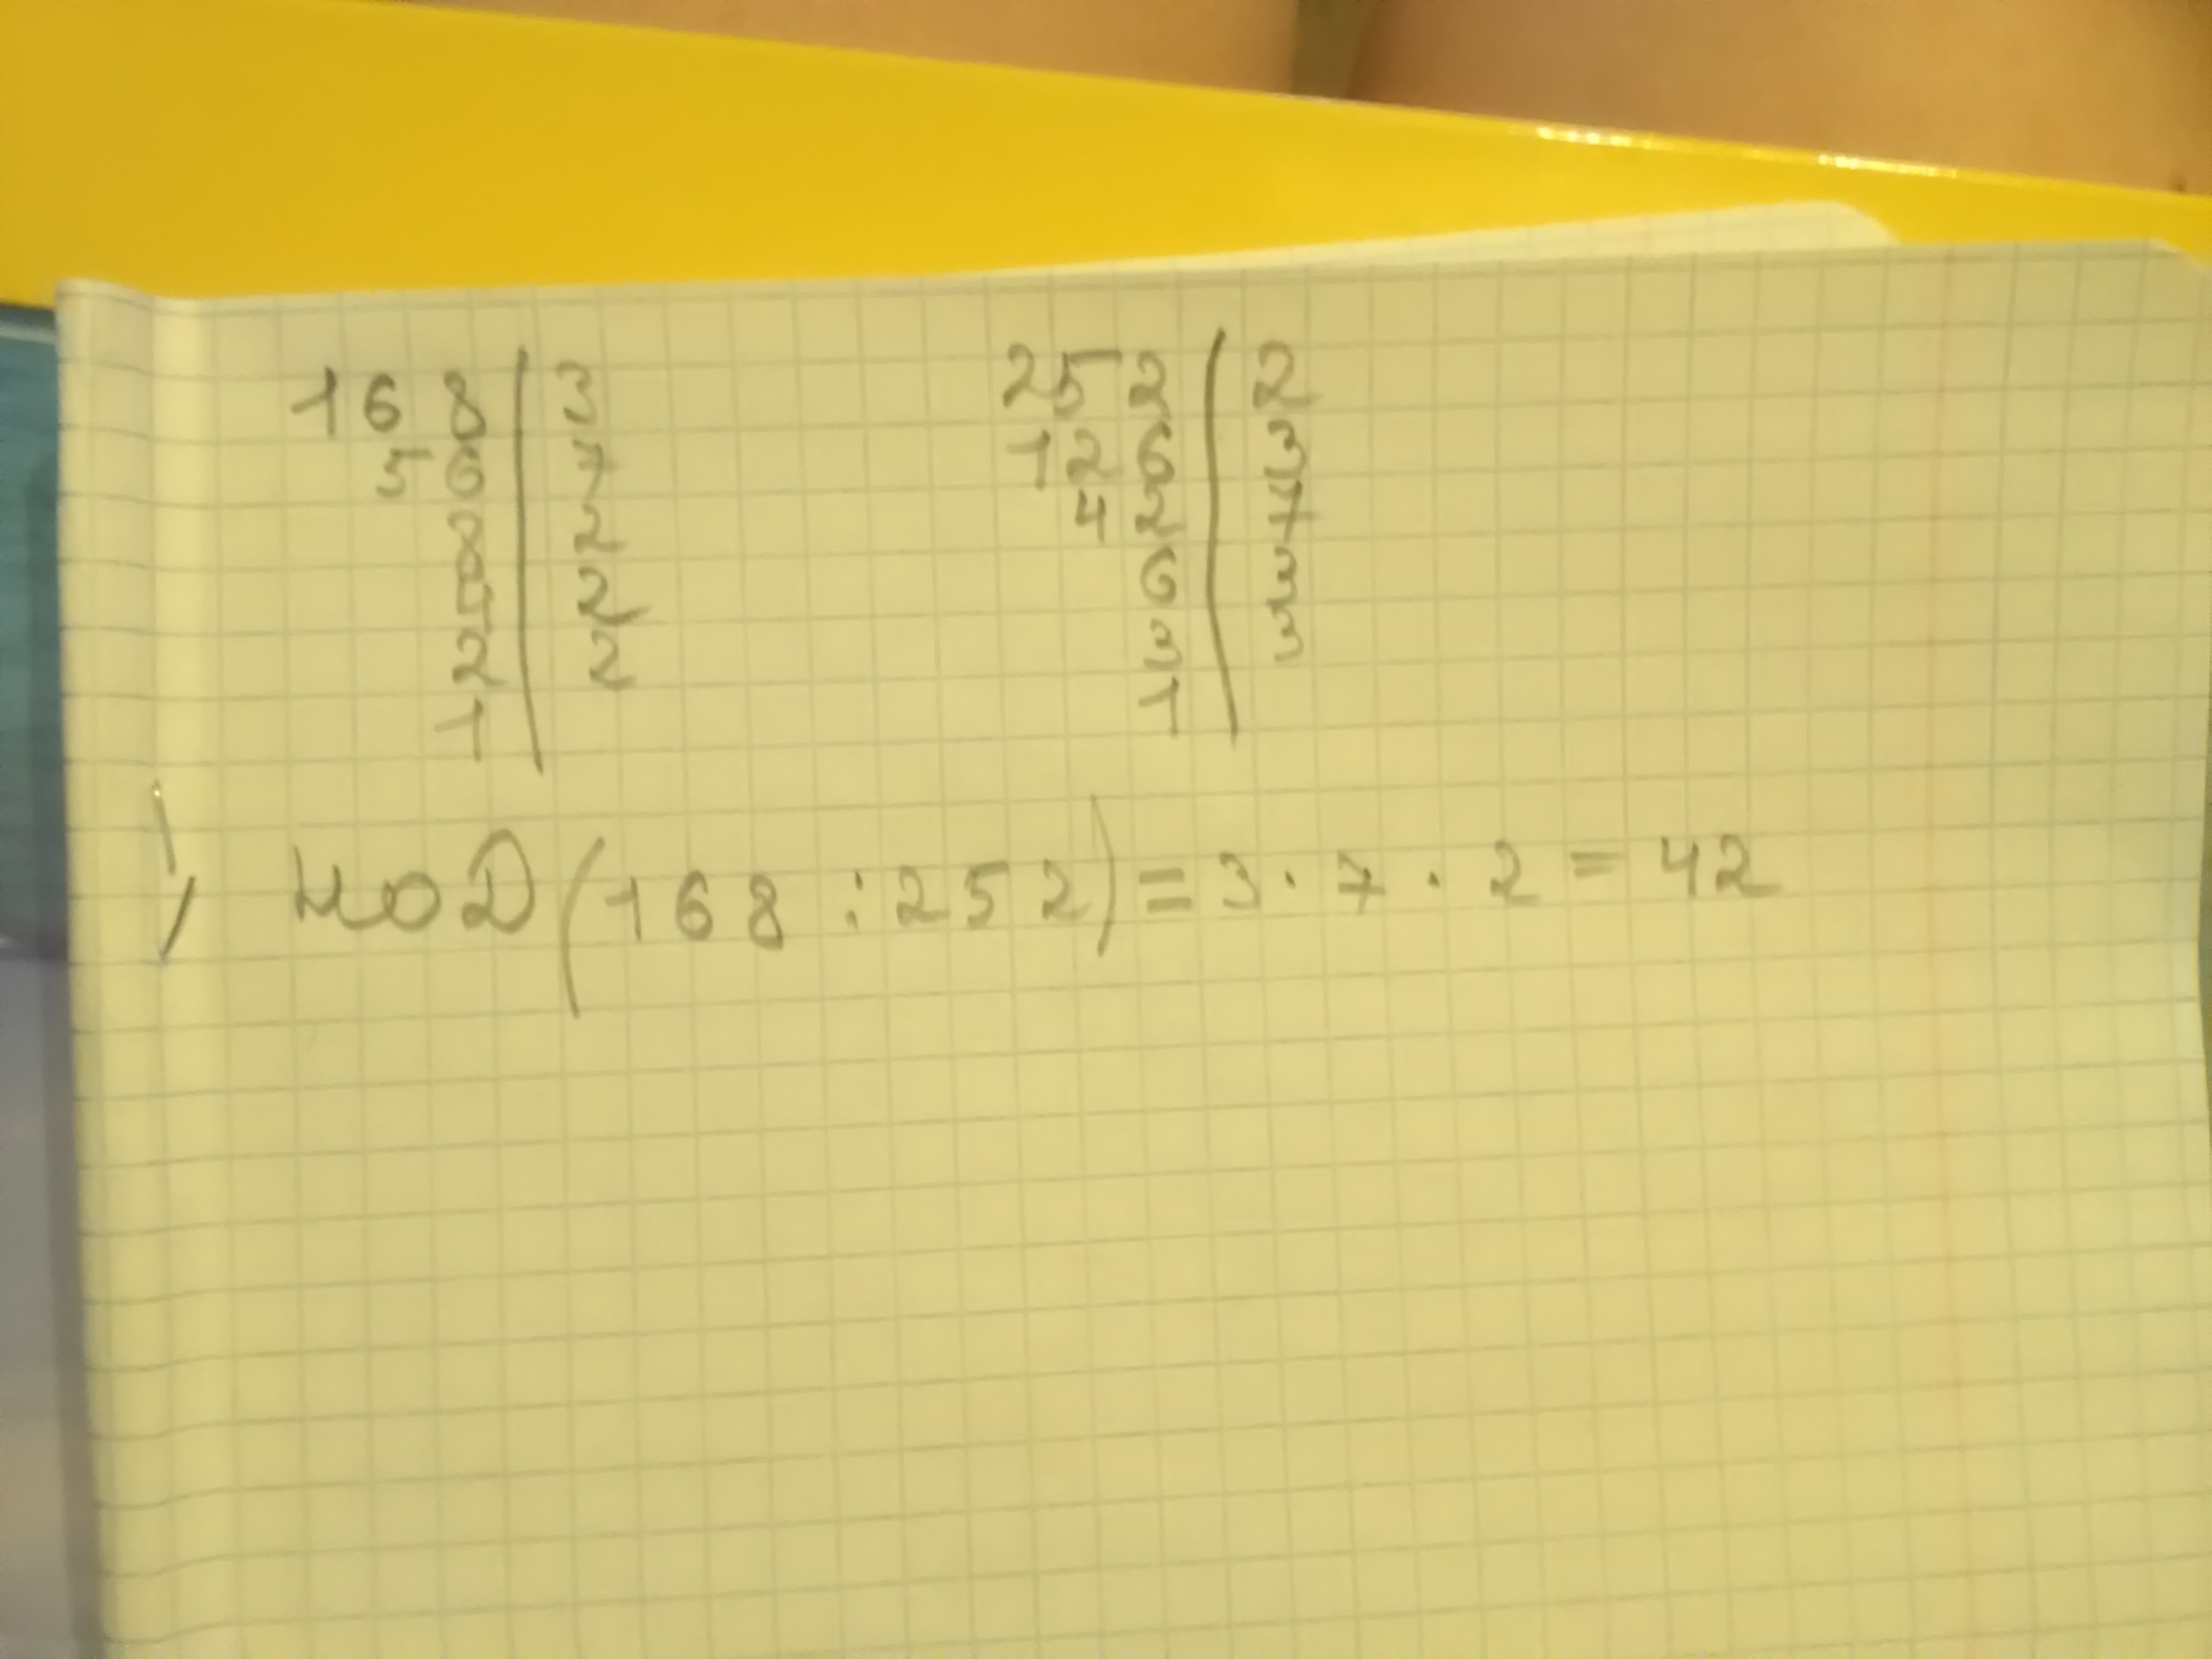 168 | 3
56 | 7
8 | 2
4 | 2
2 | 2
1 |
252 | 2
126 | 3
42 | 7
6 | 3
3 | 3
1 |
НОД(168:252)=3·7·2=42